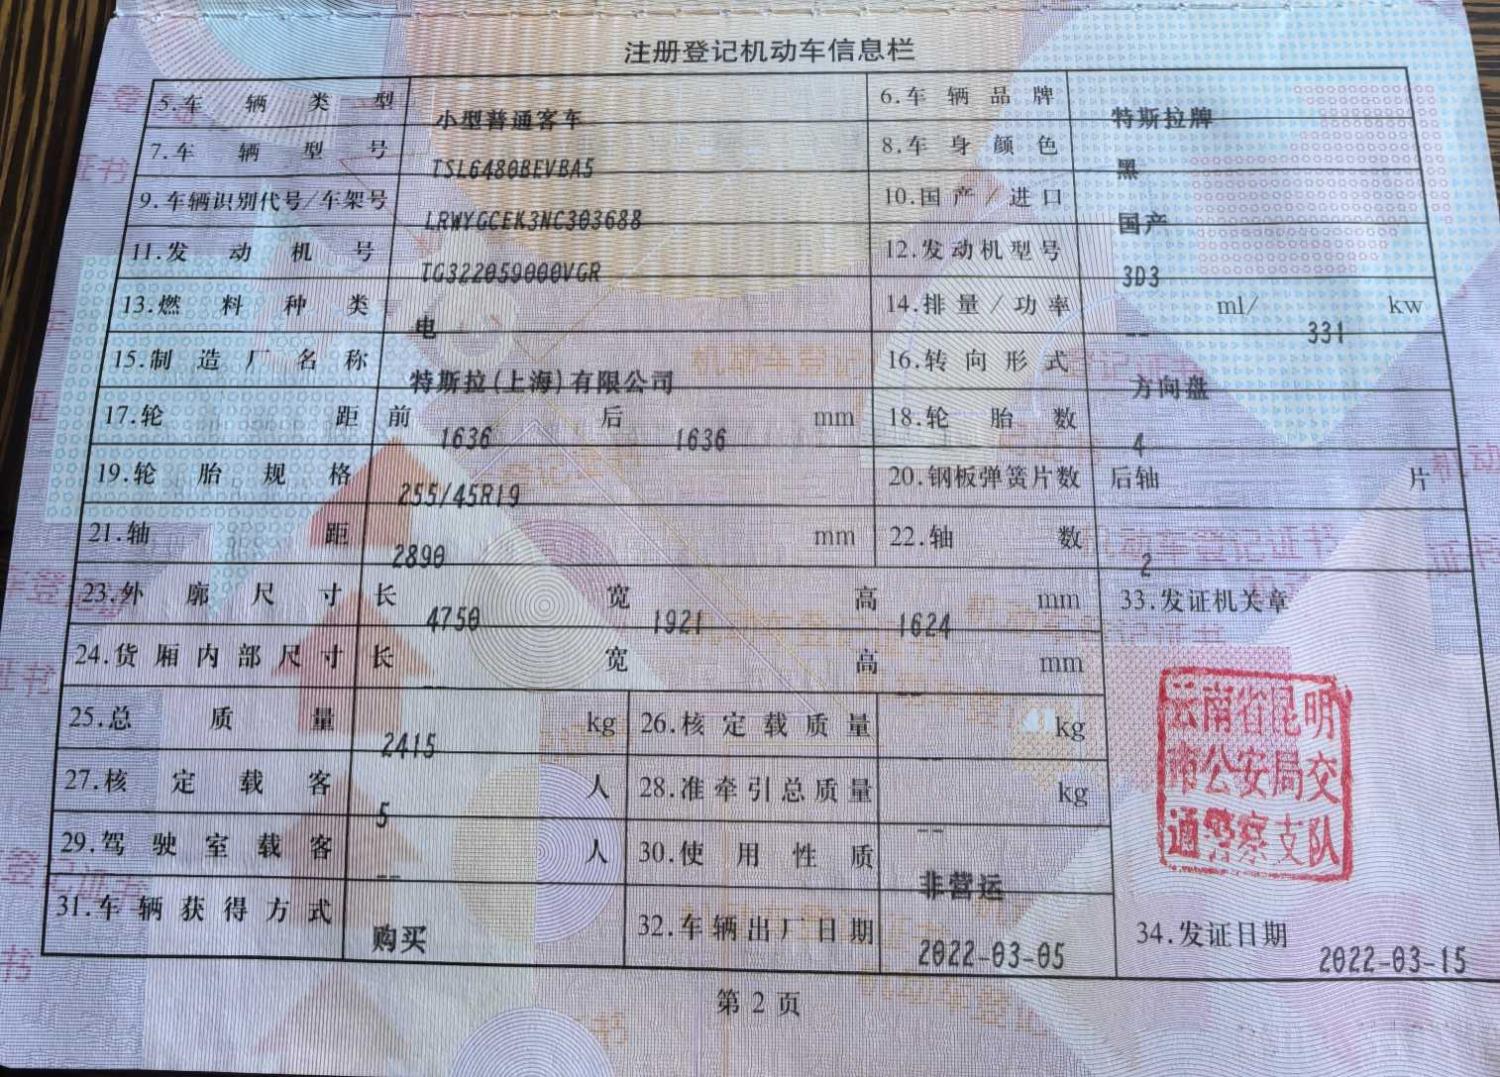 注册登记机动车信息栏
5.车辆类型 小型普通客车 6.车辆品牌 特斯拉牌
7.车辆型号 TSL6480BEVBA5 8.车身颜色 黑
9.车辆识别代号/车架号 LRWYGCEK3NC303688 10.国产/进口 国产
11.发动机号 TG322059000VGR 12.发动机型号 3D3
13.燃料种类 电 14.排量/功率 -- ml/ 331 kw
15.制造厂名称 特斯拉(上海)有限公司 16.转向形式 方向盘
17.轮距 前 1636 后 1636 mm 18.轮胎数 4
19.轮胎规格 255/45R19 20.钢板弹簧片数 后轴 片
21.轴距 2890 mm 22.轴数 2
23.外廓尺寸 长 4750 宽 1921 高 1624 mm 33.发证机关章
24.货厢内部尺寸 长 -- 宽 高 -- mm
云南省昆明
市公安局交
通警察支队
25.总质量 2415 kg 26.核定载质量 -- kg
27.核定载客 5 人 28.准牵引总质量 -- kg
29.驾驶室载客 -- 人 30.使用性质 非营运
31.车辆获得方式 购买 32.车辆出厂日期 2022-03-05 34.发证日期 2022-03-15
第 2 页